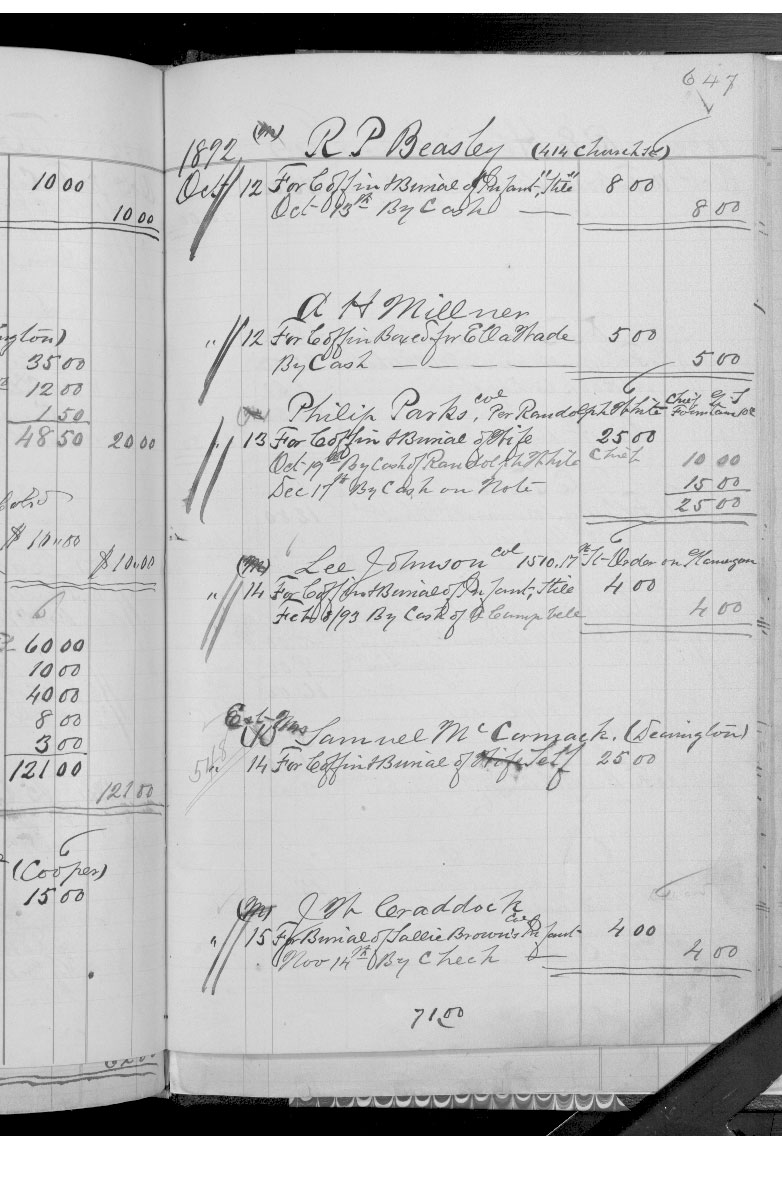 10 00
10 00
ngton)
35 00
12 00
1 50
48 50 20 00
Cold
$ 10,00
$10.00
60 00
10 00
40 00
8 00
3 00
121 00
121 00
(Cooper)
15 00
647
1892 (M) R P Beasley (414 Church St)
Oct 12 For Coffin & Burial of Infant, "Still" 8 00
Oct 13th By Cash 8 00
A H Millner
" 12 For Coffin Boxed for Ella Wade 5 00
By Cash 5 00
Philip Parks, col Per Randolph White Chief
" 13 For Coffin & Burial of Wife 25 00
Oct 19th By Cash of Randolph White Chief 10 00
Dec 17th By Cash on Note 15 00
25 00
(M) Lee Johnson col 1510, 17th St - Order on
" 14 For Coffin & Burial of Infant, Still 4 00
Feb 8/93 By Cash of Campbell 4 00
Est Mrs
Samuel McCormack. (Dearington)
518
" 14 For Coffin & Burial of Wife Self 25 00
(M) J W Craddock
" 15 For Burial of Sallie Brown's Col Infant 4 00
Nov 14th By Check 4 00
71.00